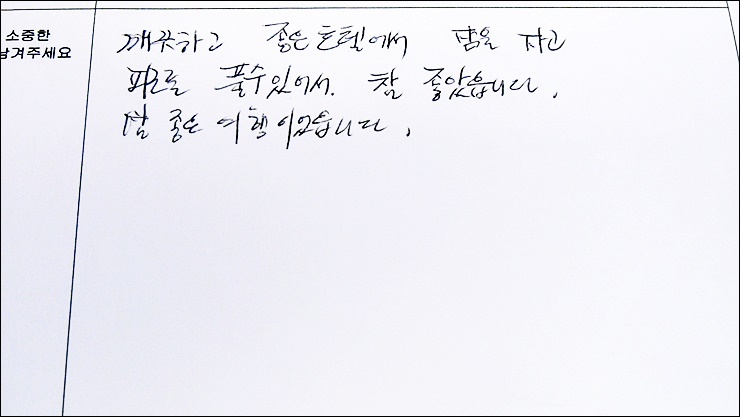 소중한
남겨주세요
깨끗하고 좋은 호텔에서 잠을 자고
피로를 풀수있어서. 참 좋았습니다.
참 좋은 여행이었습니다.